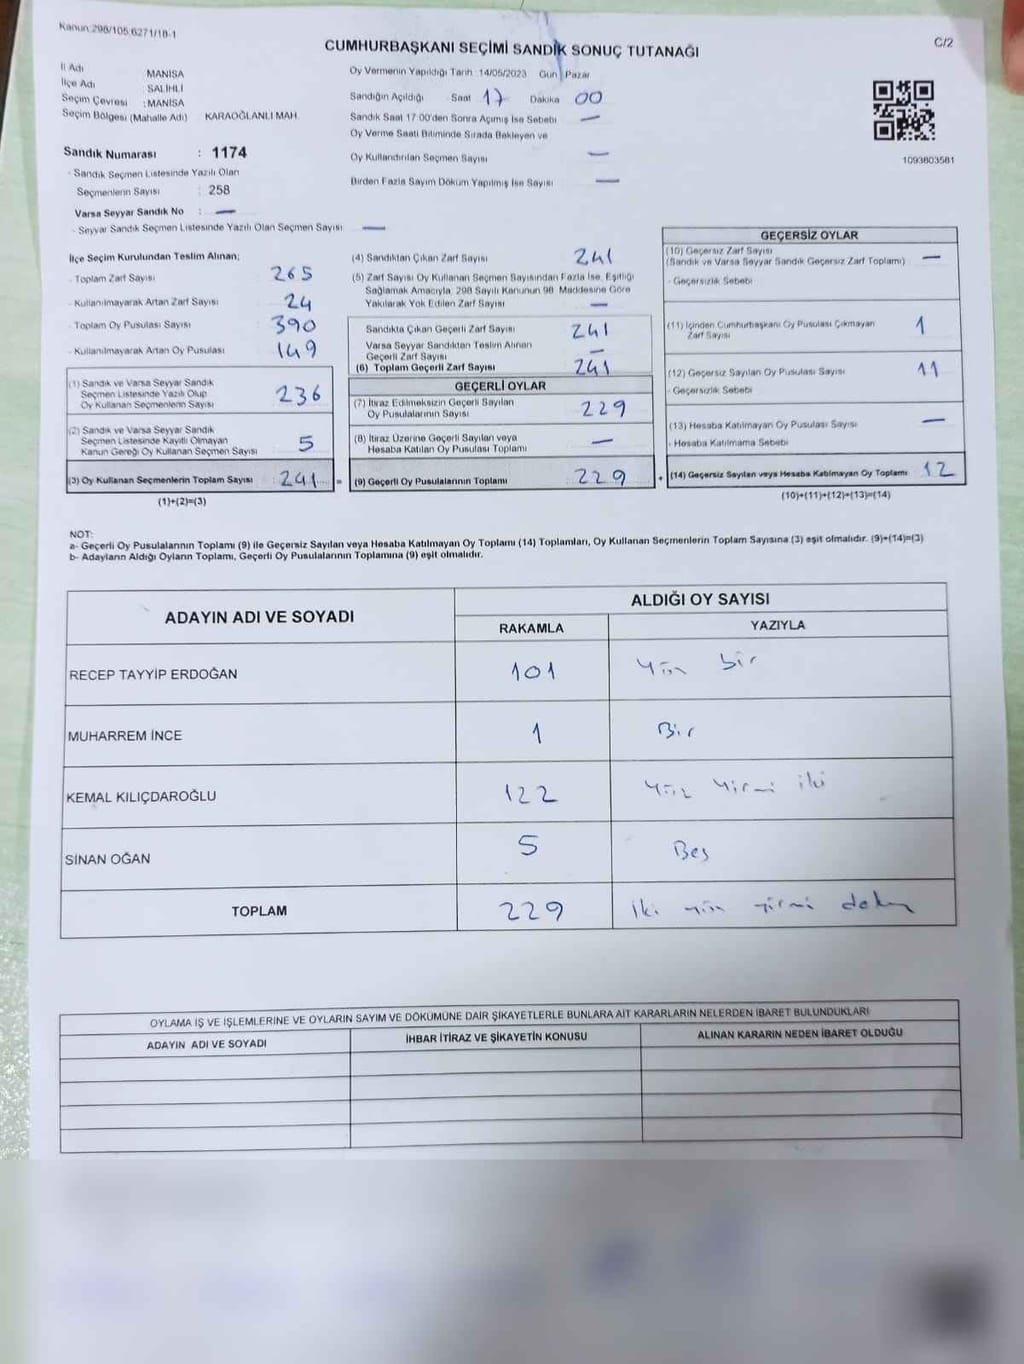 Kanun 298/105 6271/18-1
C/2
CUMHURBAŞKANI SEÇİMİ SANDIK SONUÇ TUTANAĞI
İl Adı MANİSA
İlçe Adı SALİHLİ
Seçim Çevresi : MANİSA
Seçim Bölgesi (Mahalle Adı) KARAOĞLANLI MAH.
Sandık Numarası : 1174
- Sandık Seçmen Listesinde Yazılı Olan
Seçmenlerin Sayısı : 258
Varsa Seyyar Sandık No : —
- Seyyar Sandık Seçmen Listesinde Yazılı Olan Seçmen Sayısı —
Oy Vermenin Yapıldığı Tarih 14/05/2023 Gün Pazar
Sandığın Açıldığı Saat 17 Dakika 00
Sandık Saat 17:00'den Sonra Açımış İse Sebebi —
Oy Verme Saati Bitiminde Sırada Bekleyen ve
Oy Kullandırılan Seçmen Sayısı —
Birden Fazla Sayım Döküm Yapılmış İse Sayısı —
1093803581
İlçe Seçim Kurulundan Teslim Alınan;
- Toplam Zarf Sayısı 265
- Kullanılmayarak Artan Zarf Sayısı 24
- Toplam Oy Pusulası Sayısı 390
- Kullanılmayarak Artan Oy Pusulası 149
(1) Sandık ve Varsa Seyyar Sandık
Seçmen Listesinde Yazılı Olup
Oy Kullanan Seçmenlerin Sayısı 236
(2) Sandık ve Varsa Seyyar Sandık
Seçmen Listesinde Kayıtlı Olmayan
Kanun Gereği Oy Kullanan Seçmen Sayısı 5
(3) Oy Kullanan Seçmenlerin Toplam Sayısı 241 =
(1)+(2)=(3)
(4) Sandıktan Çıkan Zarf Sayısı 241
(5) Zarf Sayısı Oy Kullanan Seçmen Sayısından Fazla İse, Eşitliği
Sağlamak Amacıyla, 298 Sayılı Kanunun 98. Maddesine Göre
Yakılarak Yok Edilen Zarf Sayısı —
Sandıkta Çıkan Geçerli Zarf Sayısı 241
Varsa Seyyar Sandıktan Teslim Alınan
Geçerli Zarf Sayısı —
(6) Toplam Geçerli Zarf Sayısı 241
GEÇERLİ OYLAR
(7) İtiraz Edilmeksizin Geçerli Sayılan
Oy Pusulalarının Sayısı 229
(8) İtiraz Üzerine Geçerli Sayılan veya
Hesaba Katılan Oy Pusulası Toplamı —
(9) Geçerli Oy Pusulalarının Toplamı 229 +
GEÇERSİZ OYLAR
(10) Geçersiz Zarf Sayısı
(Sandık ve Varsa Seyyar Sandık Geçersiz Zarf Toplamı) —
- Geçersizlik Sebebi
(11) İçinden Cumhurbaşkanı Oy Pusulası Çıkmayan
Zarf Sayısı 1
(12) Geçersiz Sayılan Oy Pusulası Sayısı 11
- Geçersizlik Sebebi
(13) Hesaba Katılmayan Oy Pusulası Sayısı —
- Hesaba Katılmama Sebebi
(14) Geçersiz Sayılan veya Hesaba Katılmayan Oy Toplamı 12
(10)+(11)+(12)+(13)=(14)
NOT:
a- Geçerli Oy Pusulalarının Toplamı (9) ile Geçersiz Sayılan veya Hesaba Katılmayan Oy Toplamı (14) Toplamları, Oy Kullanan Seçmenlerin Toplam Sayısına (3) eşit olmalıdır. (9)+(14)=(3)
b- Adayların Aldığı Oyların Toplamı, Geçerli Oy Pusulalarının Toplamına (9) eşit olmalıdır.
ADAYIN ADI VE SOYADI ALDIĞI OY SAYISI
RAKAMLA YAZIYLA
RECEP TAYYİP ERDOĞAN 101 Yüz bir
MUHARREM İNCE 1 Bir
KEMAL KILIÇDAROĞLU 122 Yüz Yirmi iki
SİNAN OĞAN 5 Beş
TOPLAM 229 İki yüz yirmi dokuz
OYLAMA İŞ VE İŞLEMLERİNE VE OYLARIN SAYIM VE DÖKÜMÜNE DAİR ŞİKAYETLERLE BUNLARA AİT KARARLARIN NELERDEN İBARET BULUNDUKLARI
ADAYIN ADI VE SOYADI İHBAR İTİRAZ VE ŞİKAYETİN KONUSU ALINAN KARARIN NEDEN İBARET OLDUĞU